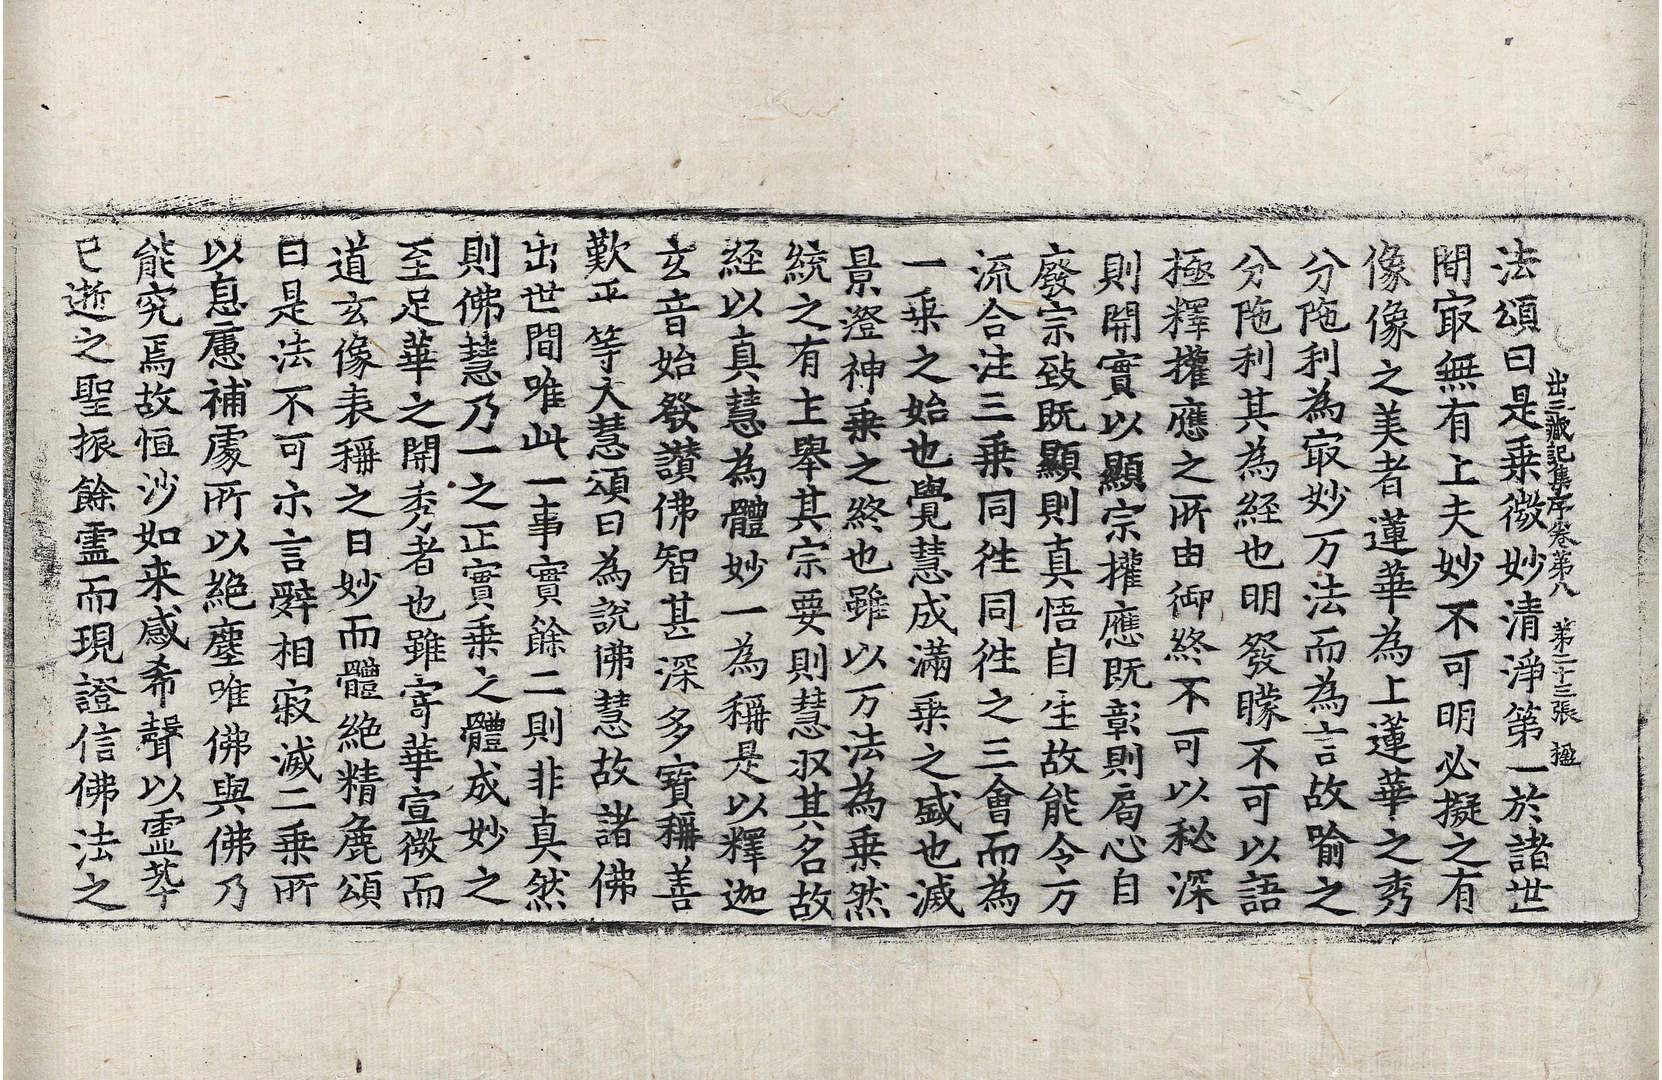 出三藏記集序卷第八　第二十三張　極
法頌曰是乗微妙清淨第一於諸世
間㝡無有上夫妙不可明必擬之有
像像之美者蓮華為上蓮華之秀
分陁利為㝡妙万法而為言故喻之
分陁利其為経也明發矇不可以語
極釋權應之所由御終不可以秘深
則開實以顯宗權應既彰則局心自
廢宗致既顯則真悟自生故能令万
流合注三乗同徃同徃之三會而為
一乗之始也覺慧成滿乗之盛也滅
景澄神乗之終也雖以万法為乗然
統之有主舉其宗要則慧収其名故
経以真慧為體妙一為稱是以釋迦
玄音始發讃佛智甚深多寳稱善
歎平等大慧頌曰為說佛慧故諸佛
出世間唯此一事實餘二則非真然
則佛慧乃一之正實乗之體成妙之
至足華之開秀者也雖寄華宣微而
道玄像表稱之曰妙而體絶精麁頌
曰是法不可示言辭相寂滅二乗所
以息慮補處所以絶塵唯佛與佛乃
能究焉故恒沙如来感希聲以雲萃
已逝之聖振餘靈而現證信佛法之